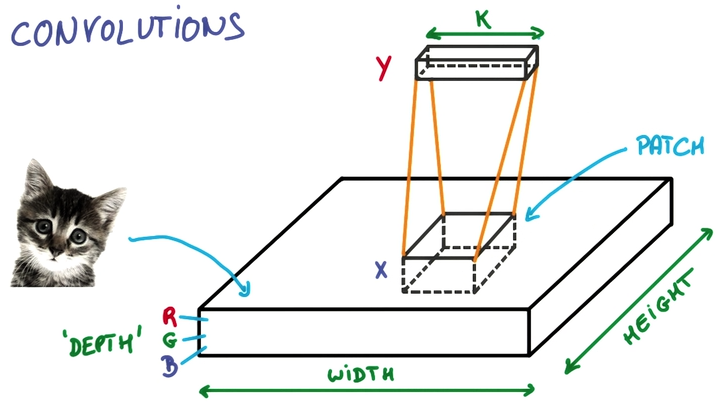 CONVOLUTIONS
K
Y
PATCH
X
R
'DEPTH' G
B
WIDTH
HEIGHT